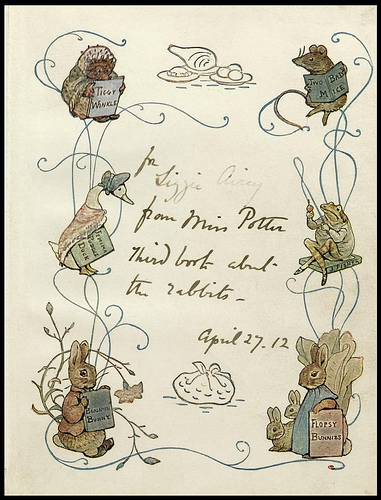 TIGGY
WINKLE
TWO BAD
MICE
for
Lizzie Airey
from Miss Potter
JEMIMA
PUDDLE
DUCK
J. FISHER
Third book about
the rabbits –
April 27. 12
BENJAMIN
BUNNY
FLOPSY
BUNNIES